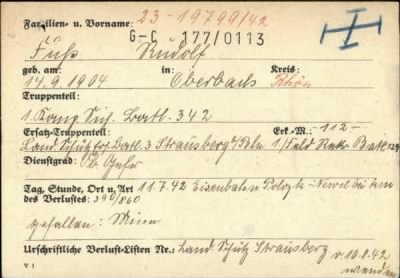 Familien- u. Vorname: 23-19799/42
G-C 177/0113
Füß Rudolf
geb. am: in: Kreis:
14.9.1904 Oberbach Rhön
Truppenteil:
1. Komp. Sich. Batl. 342
Ersatz-Truppenteil: Erk.-M.: -112-
Land. Schütz. Ers. Batl. 3 Strausberg 1./Feld Rekr. Batl
Dienstgrad: Ob. Gefr.
Tag, Stunde, Ort u. Art 11.7.42 Eisenbahn Polozk-Newel bei km
des Verlustes: 390/860
gefallen: Mine
Urschriftliche Verlust-Listen Nr.: Land. Schütz Strausberg
v 10.8.42
V 1